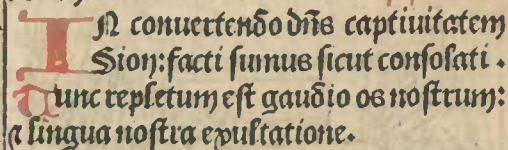 IN conuertendo dn̄s captiuitatem
Sion: facti sumus sicut consolati.
Tunc repletum est gaudio os nostrum:
⁊ lingua nostra exultatione.